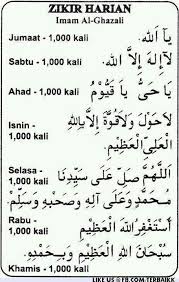 ZIKIR HARIAN
Imam Al-Ghazali
Jumaat - 1,000 kali يَا اَللّٰه.
Sabtu - 1,000 kali لَآاِلٰهَ اِلَّا اللّٰه.
Ahad - 1,000 kali يَا حَيُّ يَا قَيُّوْمُ
Isnin - 1,000 kali لَاحَوْلَ وَلَاقُوَّةَ اِلَّا بِاللّٰهِ
الْعَلِيِّ الْعَظِيْمِ.
Selasa - 1,000 kali اَللّٰهُمَّ صَلِّ عَلَى سَيِّدِنَا
مُحَمَّدٍ وَعَلَى آلِهِ وَصَحْبِهِ وَسَلِّمْ.
Rabu - 1,000 kali أَسْتَغْفِرُ اللّٰهَ الْعَظِيْمِ
سُبْحَانَ اللّٰهِ الْعَظِيْمِ وَبِحَمْدِهِ.
Khamis - 1,000 kali
LIKE US @ FB.COM/TERBAIKK